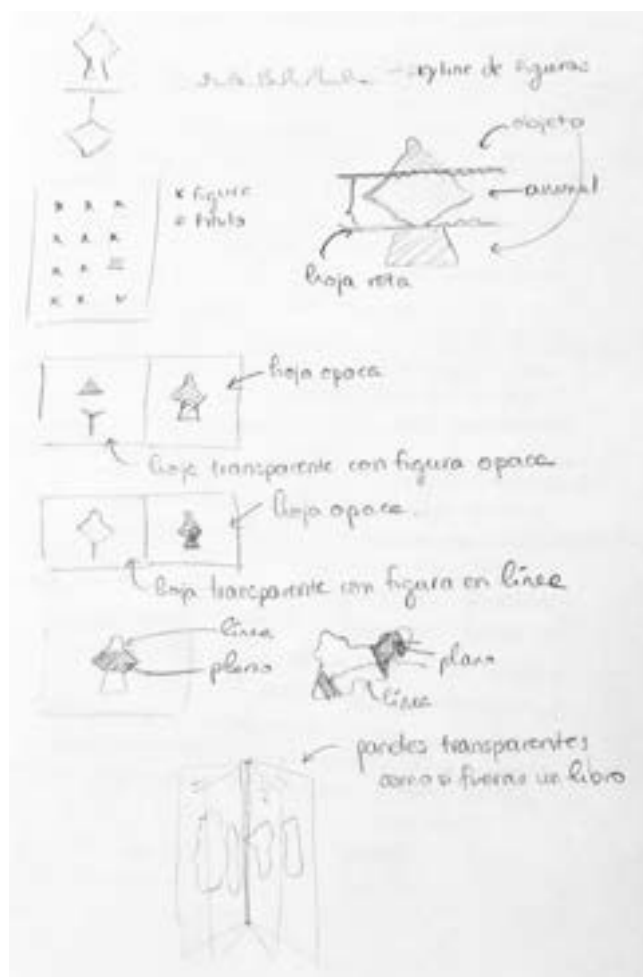 skyline de figuras
objeto
x figura
o título
animal
hoja rota
hoja opaca
hoja transparente con figura opaca
hoja opaca
hoja transparente con figura en línea
línea
plano
plano
línea
paneles transparentes
como si fueras un libro